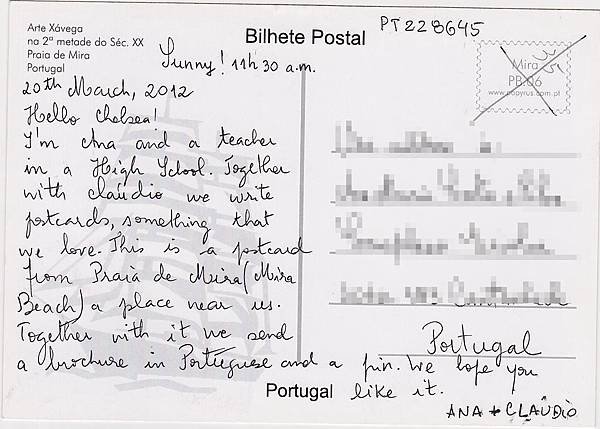 Arte Xávega
na 2ª metade do Séc. XX
Praia de Mira
Portugal
Bilhete Postal
PT228645
Mira
PB.06
www.papyrus.com.pt
Sunny! 11h30 a.m.
20th March, 2012
Hello Chelsea!
I'm Ana and a teacher
in a High School. Together
with Cláudio we write
postcards, something that
we love. This is a postcard
from Praia de Mira (Mira
Beach) a place near us.
Together with it we send
a brochure in Portuguese and a pin. We hope you
like it.
ANA + CLÁUDIO
Portugal
Portugal